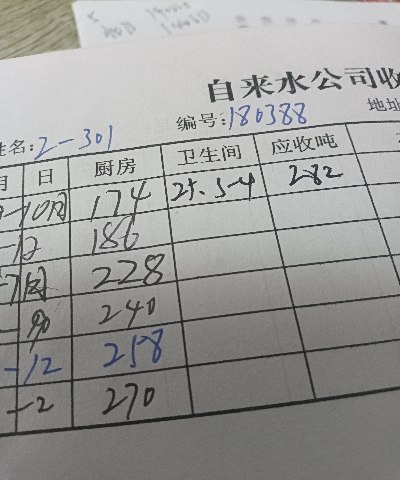 自来水公司收
姓名: 2-301 编号: 180388 地址
月 日 厨房 卫生间 应收吨
10月 174 282
-12 186
228
240
-12 258
-2 270